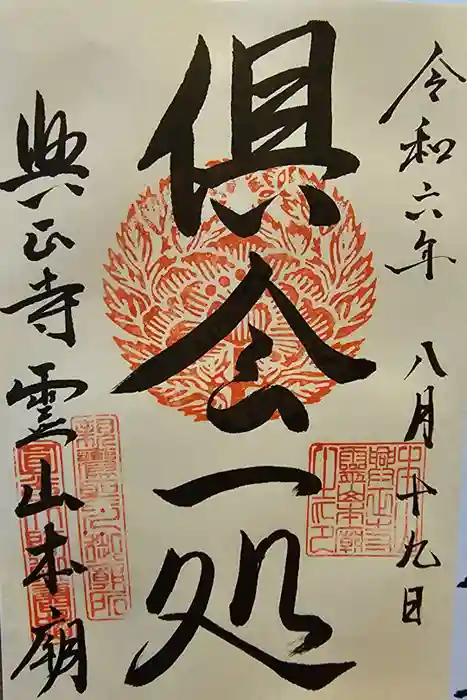 令和六年 八月十九日
俱会一処
興正寺霊山本廟